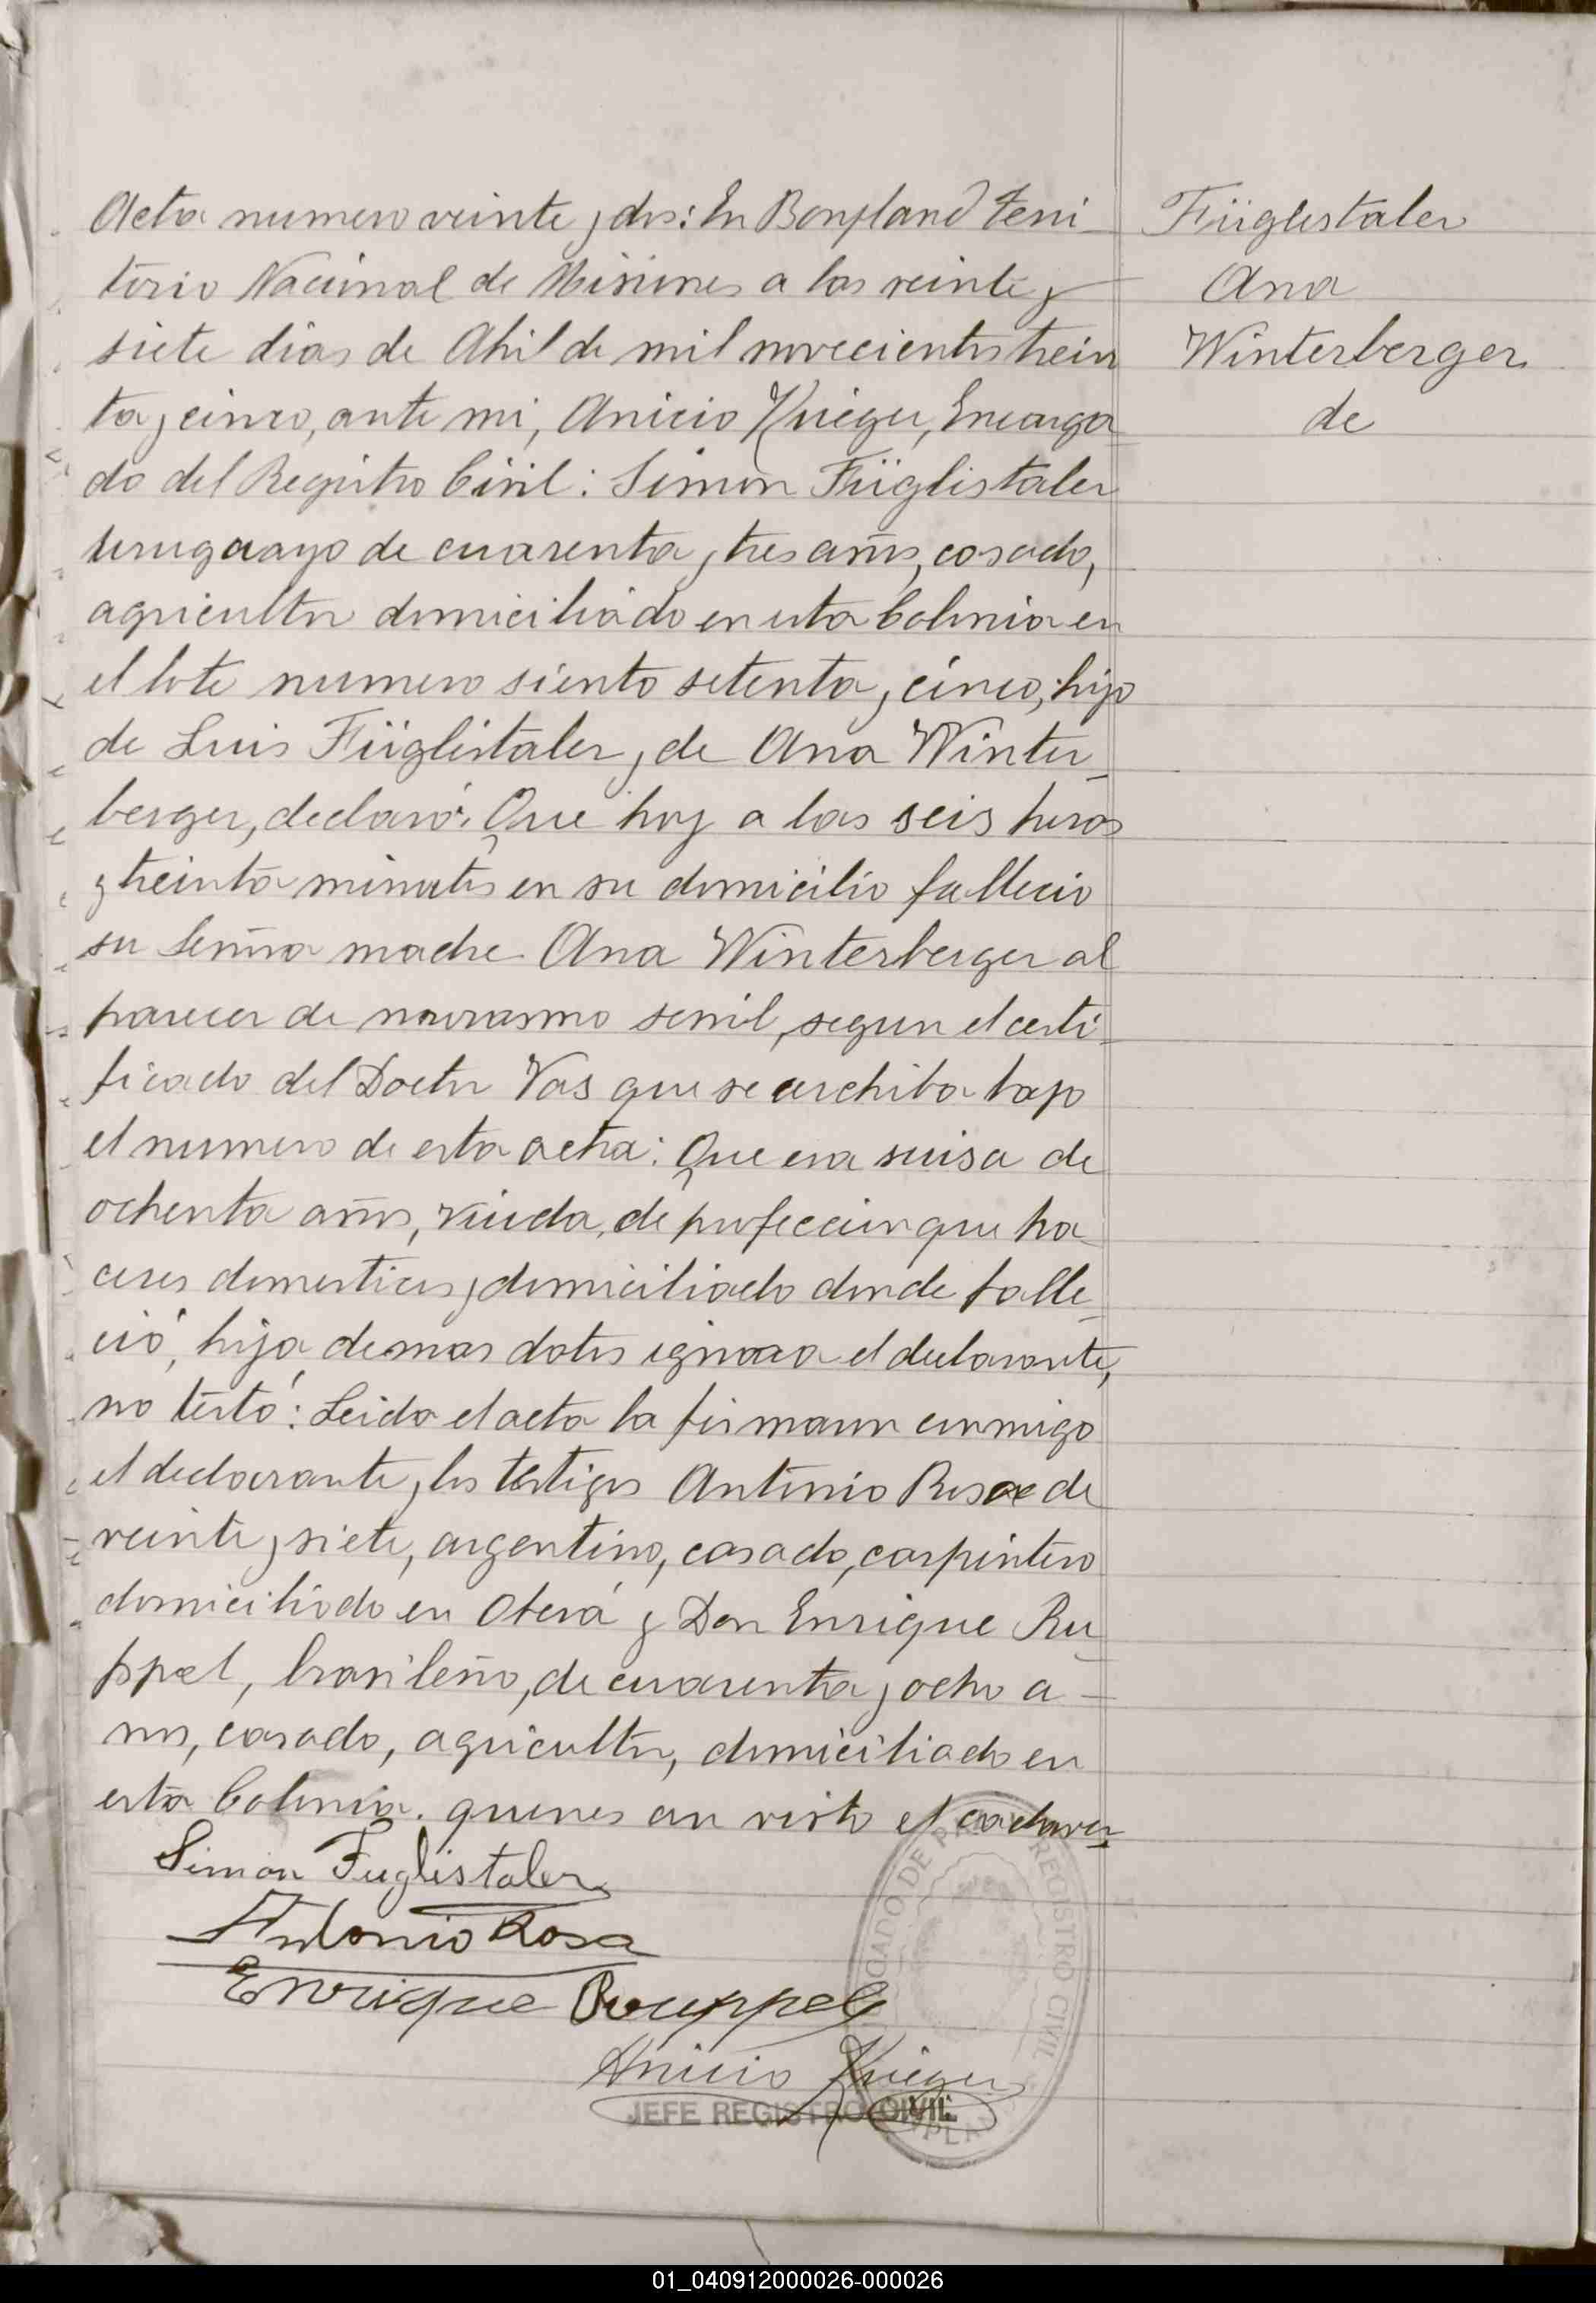 Acta numero veinte y dos: En Bonpland Terri-
torio Nacional de Misiones a los veinte y
siete dias de Abril de mil novecientos trein
ta y cinco, ante mi, Anicio Krieger, Encarga
do del Registro Civil: Simon Füglistaler
uruguayo de cuarenta y tres años, casado,
agricultor domiciliado en esta Colonia en
el lote numero siento setenta y cinco, hijo
de Luis Füglistaler y de Ana Winter-
berger, declaró: Que hoy a las seis horas
y treinta minutos en su domicilio fallecio
su Señora madre Ana Winterberger al
parecer de marasmo senil, segun el certi-
ficado del Doctor Vas que se archiba bajo
el numero de esta acta: Que era suisa de
ochenta años, viuda, de profeccion que ha-
ceres domesticos y domiciliado donde falle-
ció, hija demas datos ignora el declarante,
no testó: Leida el acta la firmann conmigo
el declarante y los testigos Antonio Rosa de
veinte y siete, argentino, casado, carpintero
domiciliado en Oberá y Don Enrique Ru-
ppel, brasileño, de cuarenta y ocho a-
ños, casado, agricultor, domiciliado en
esta Colonia. quienes an visto el cadaver.
Simon Fuglistaler
Antonio Rosa
Enrique Rouppel
Anicio Krieger
JEFE REGISTRO CIVIL
REGISTRO CIVIL
Füglistaler
Ana
Winterberger
de
01_040912000026-000026